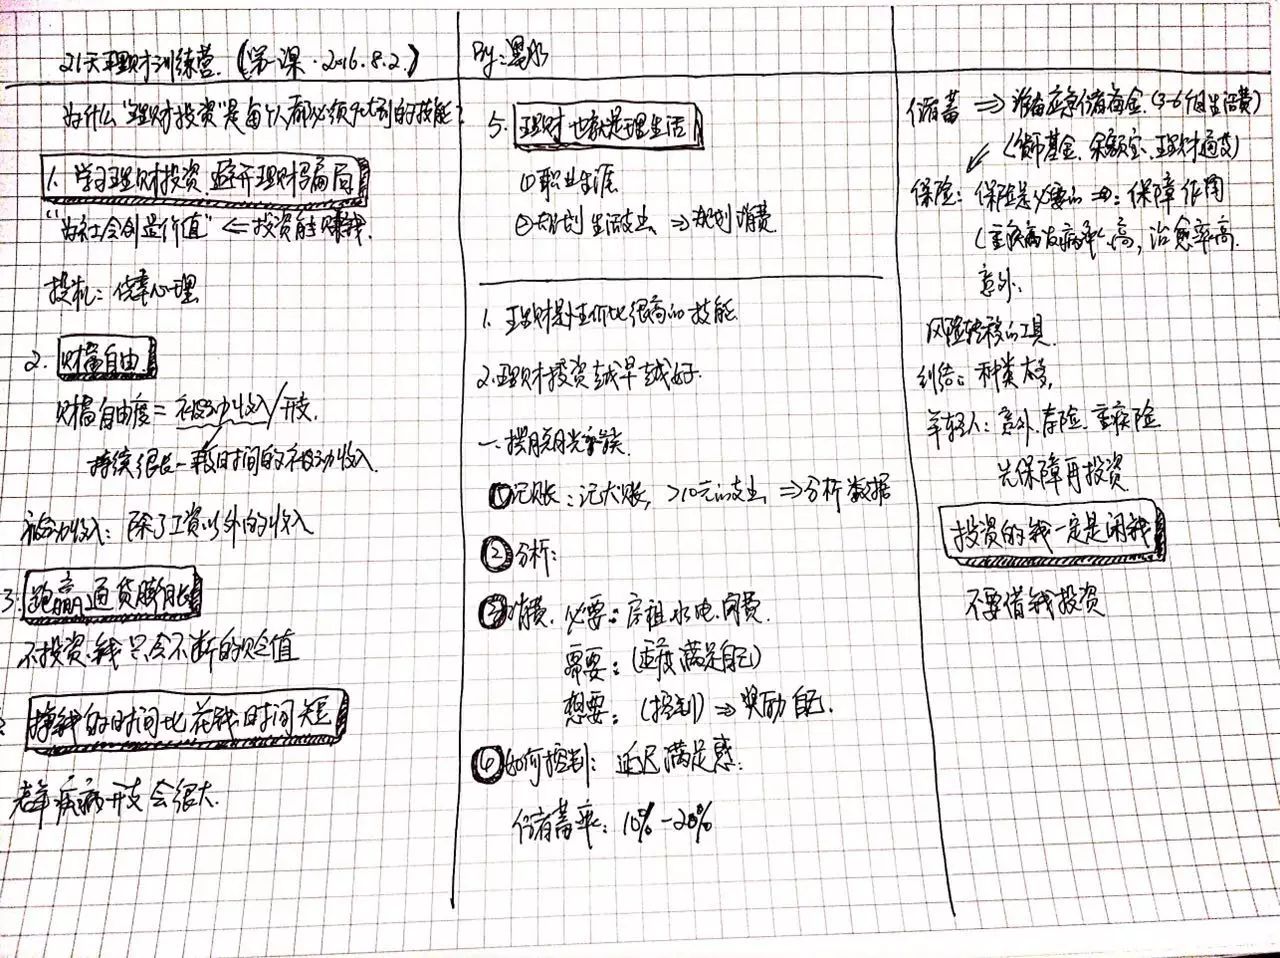 21天理财训练营.(第一课·2016.8.2.)
为什么"理财投资"是每个人都必须get到的技能?
1. 学习理财投资.避开理财骗局
"为社会创造价值" ⇐ 投资能赚钱.
投机: 侥幸心理
2. 财富自由.
财富自由度 = 被动收入/开支.
持续很长一段时间的被动收入.
被动收入: 除了工资以外的收入
3. 跑赢通货膨胀
不投资.钱只会不断的贬值
挣钱的时间比花钱时间短
老年疾病开支会很大.
By: 墨水
5. 理财也就是理生活
①职业生涯
②规划生活支出 ⇒ 规划消费
1. 理财是性价比很高的技能
2.理财投资越早越好.
一.摆脱月光族.
①记账: 记大账, >10元的支出 ⇒分析数据
②分析:
③消费. 必要: 房租.水电.网费.
需要: (满足自己)
想要: (控制) ⇒ 奖励自己.
④如何控制: 延迟满足感.
储蓄率: 10%-20%
储蓄 ⇒ 准备应急储备金.(3-6个月生活费)
(货币基金.余额宝.理财通)
保险: 保险是必要的 ⇒: 保障作用
(重疾病发病率高, 治愈率高.
意外.
风险转移的工具.
纠结: 种类太多,
年轻人: 意外.寿险.重疾险
先保障再投资
投资的钱一定是闲钱
不要借钱投资